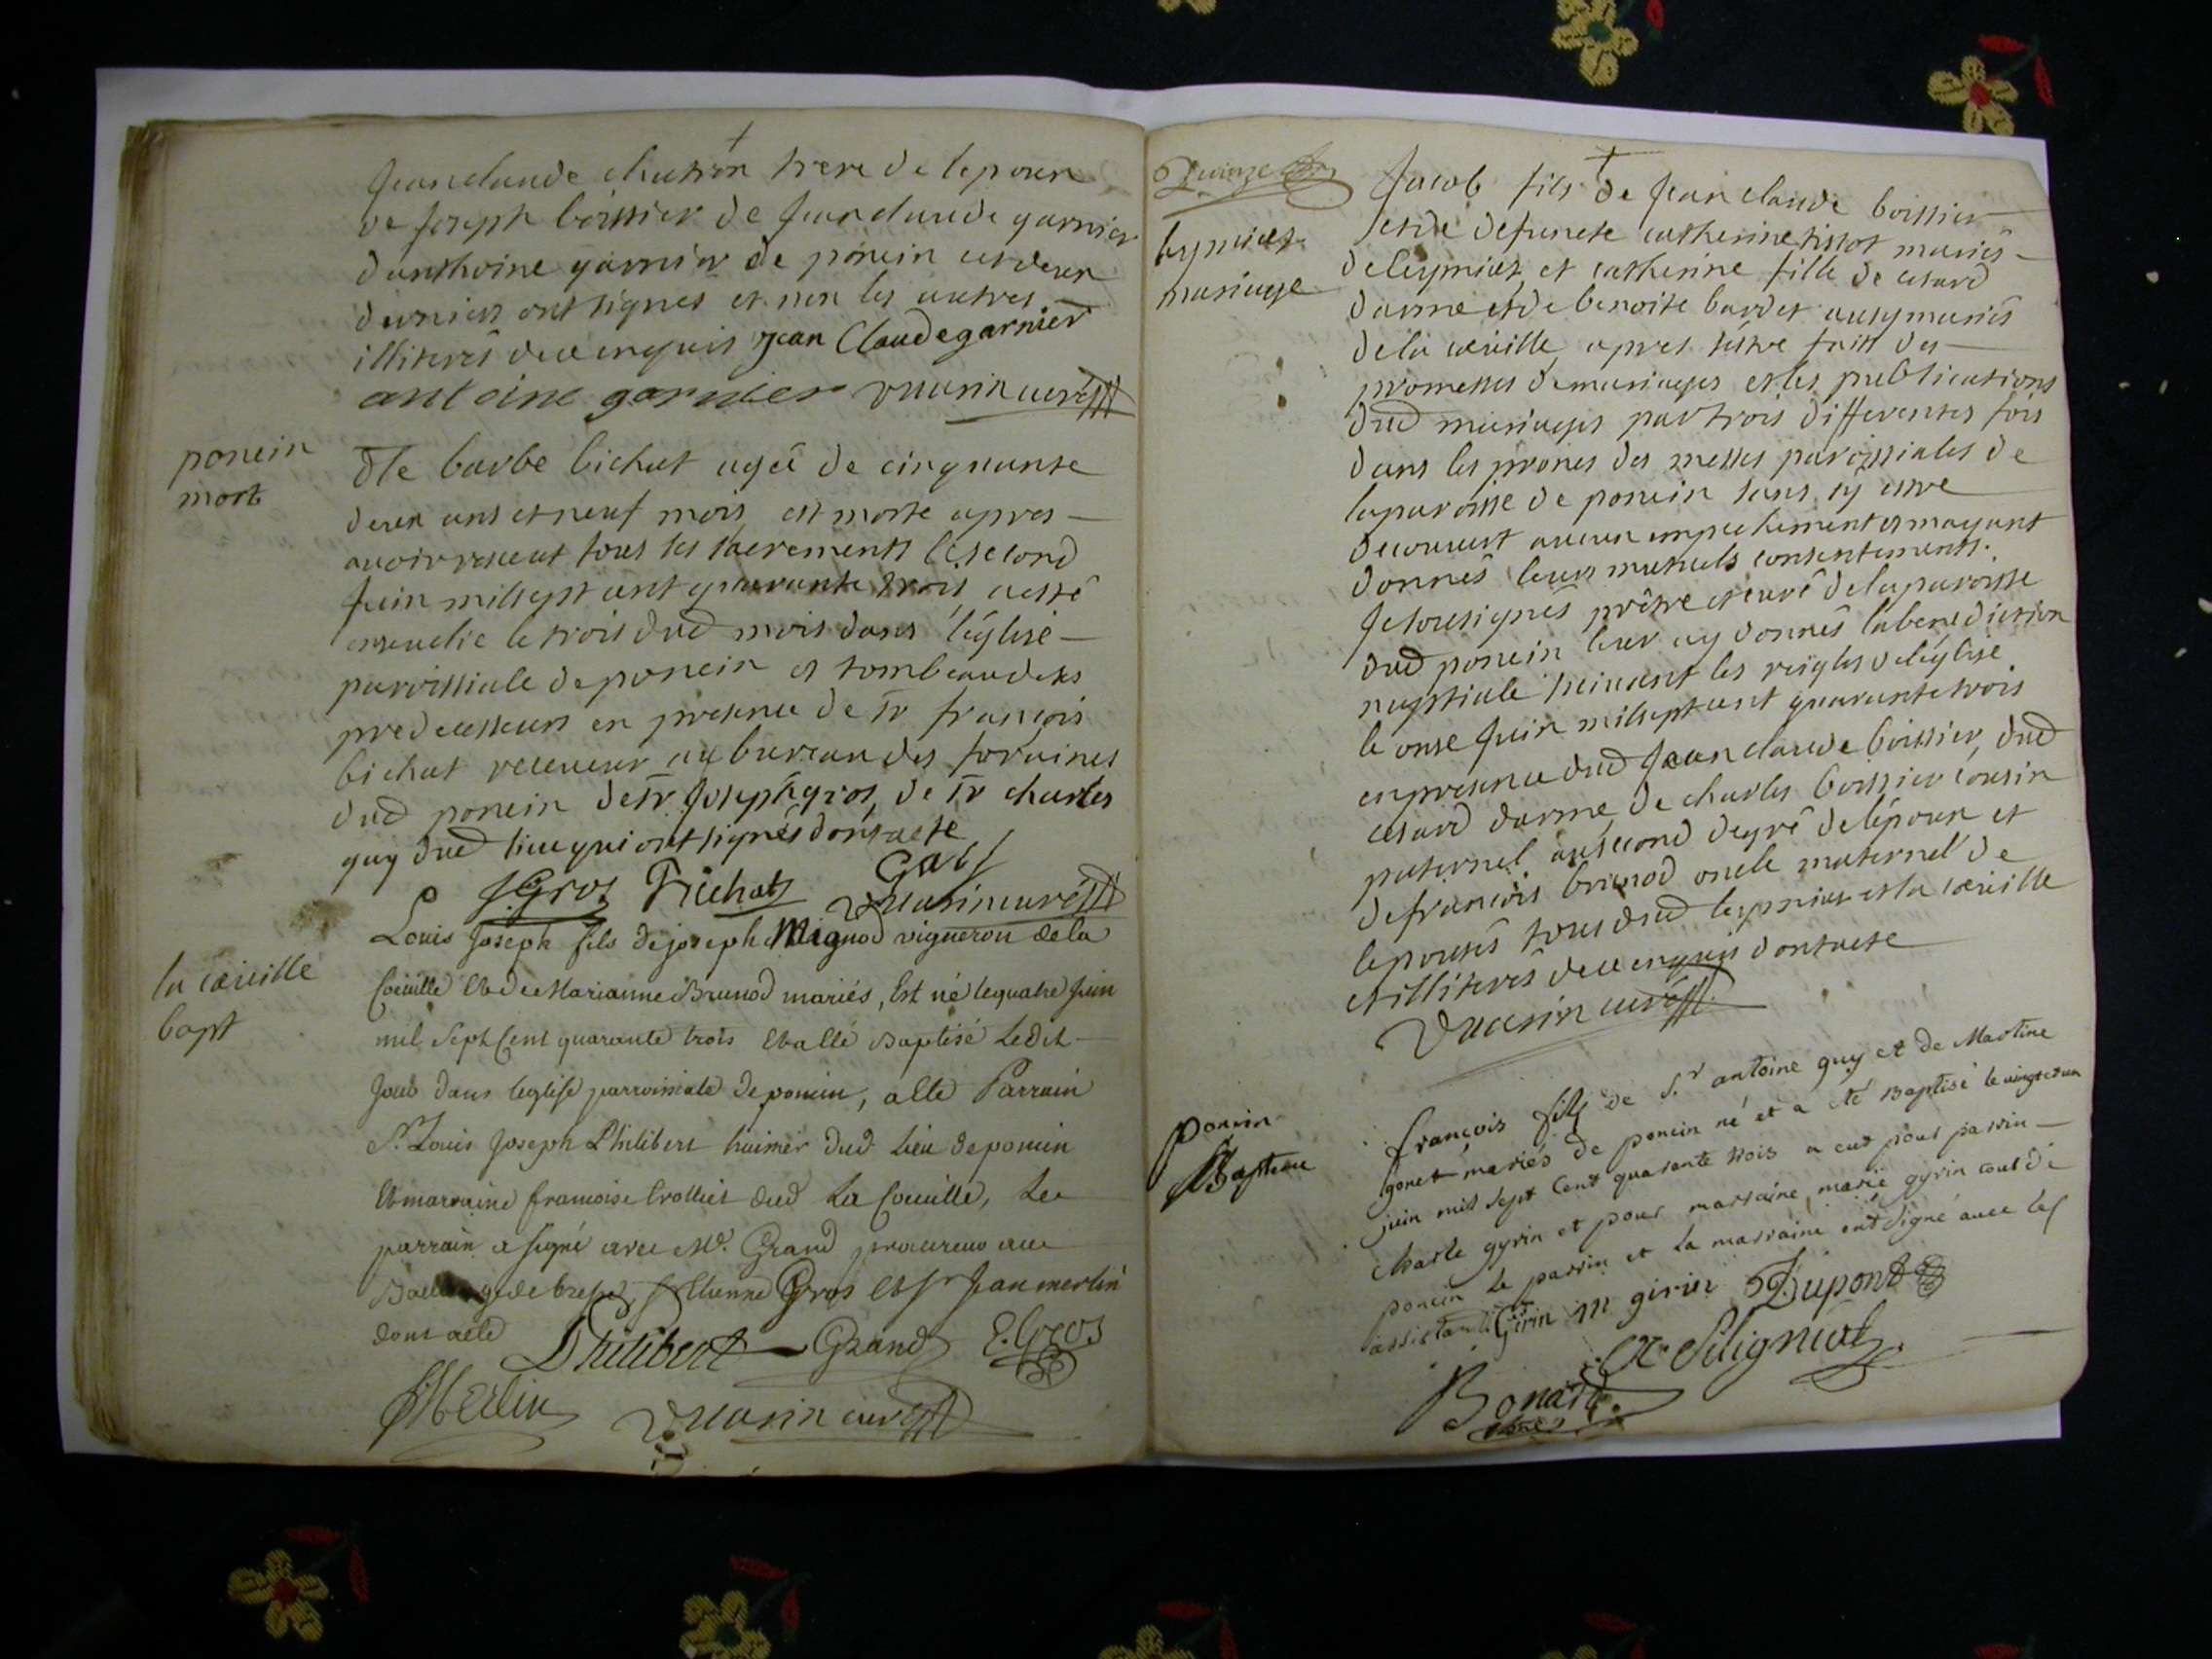 jean claude chatron frere de lepoux
de joseph boissier de jean claude garnier
danthoine garnier de poncin ces deux
derniers ont signes et non les autres
illiterés de ce enquis jean Claude garnier
antoine garnier Vuarin curé
poncin
mort
dle barbe bichat agée de cinquante
deux ans et neuf mois est morte apres
avoir receut tous les sacrements le second
juin mil sept cent quarante trois a esté
ensevelie le trois dud mois dans l'église
paroissiale de poncin et tombeau de ses
predecesseurs en presence de sr francois
bichat receveur au bureau des foraines
dud poncin de sr joseph gros, de sr charles
guy dud lieu qui ont signés dont acte
J. Gros F Bichat Guy
Vuarin curé
la coeuille
bapt
Louis Joseph fils de joseph Mignod vigneron de la
Coeuille Et de Marianne Brunod mariés, Est né le quatre juin
mil Sept Cent quarante trois Et a été Baptisé Ledit
Jour dans leglise parroissiale de poncin, a été Parrain
Sr. Louis Joseph Philibert huimer dud Lieu de poncin
Et marraine francoise trolliet dud La Coeuille, Le
parrain a signé avec Me. Grand procureur au
de bresse, Sr Etienne Gros et sr Jean merlin
dont acte Philibert Grand E. Gros
J Merlin Vuarin curé
Quinze
leymiat
mariage
Jacob fils de jean claude boissier
et de defuncte catherine tissot mariés
de leymiat et catherine fille de cesard
darme et de benoite bardet aussy mariés
de la coeuille apres s'estre faitt des
promesses de mariages et les publications
dud mariages par trois differentes fois
dans les prones des messes paroissiales de
la paroisse de poncin sans sy estre
decouvert aucun empechement et mayant
donnés leurs mutuels consentements.
Je sousignés prêtre et curé de la paroisse
dud poncin leur ay donnés la benediction
nuptiale suivant les reigles de léglise
le onse juin mil sept cent quarante trois
en presence dud jean claude boissier, dud
cesard darme, de charles boissier cousin
paternel au second degré de lépoux et
de francois brunod oncle maternel de
lepousés tous dud leymiat et la coeuille
et illiterés de ce enquis dont acte
Vuarin curé
poncin
Bapteme
françois fils de S.r antoine guy et de Martine
gonet mariés de poncin né et a eté Baptisé le vingt et un
juin mil sept cent quarante trois a eut pour parrin
charle gyrin et pour marraine marie gyrin tout de
poncin le parrin et la marraine ont signé avec les
assistants Girin m girin Dupont
C Silignial
Bonard